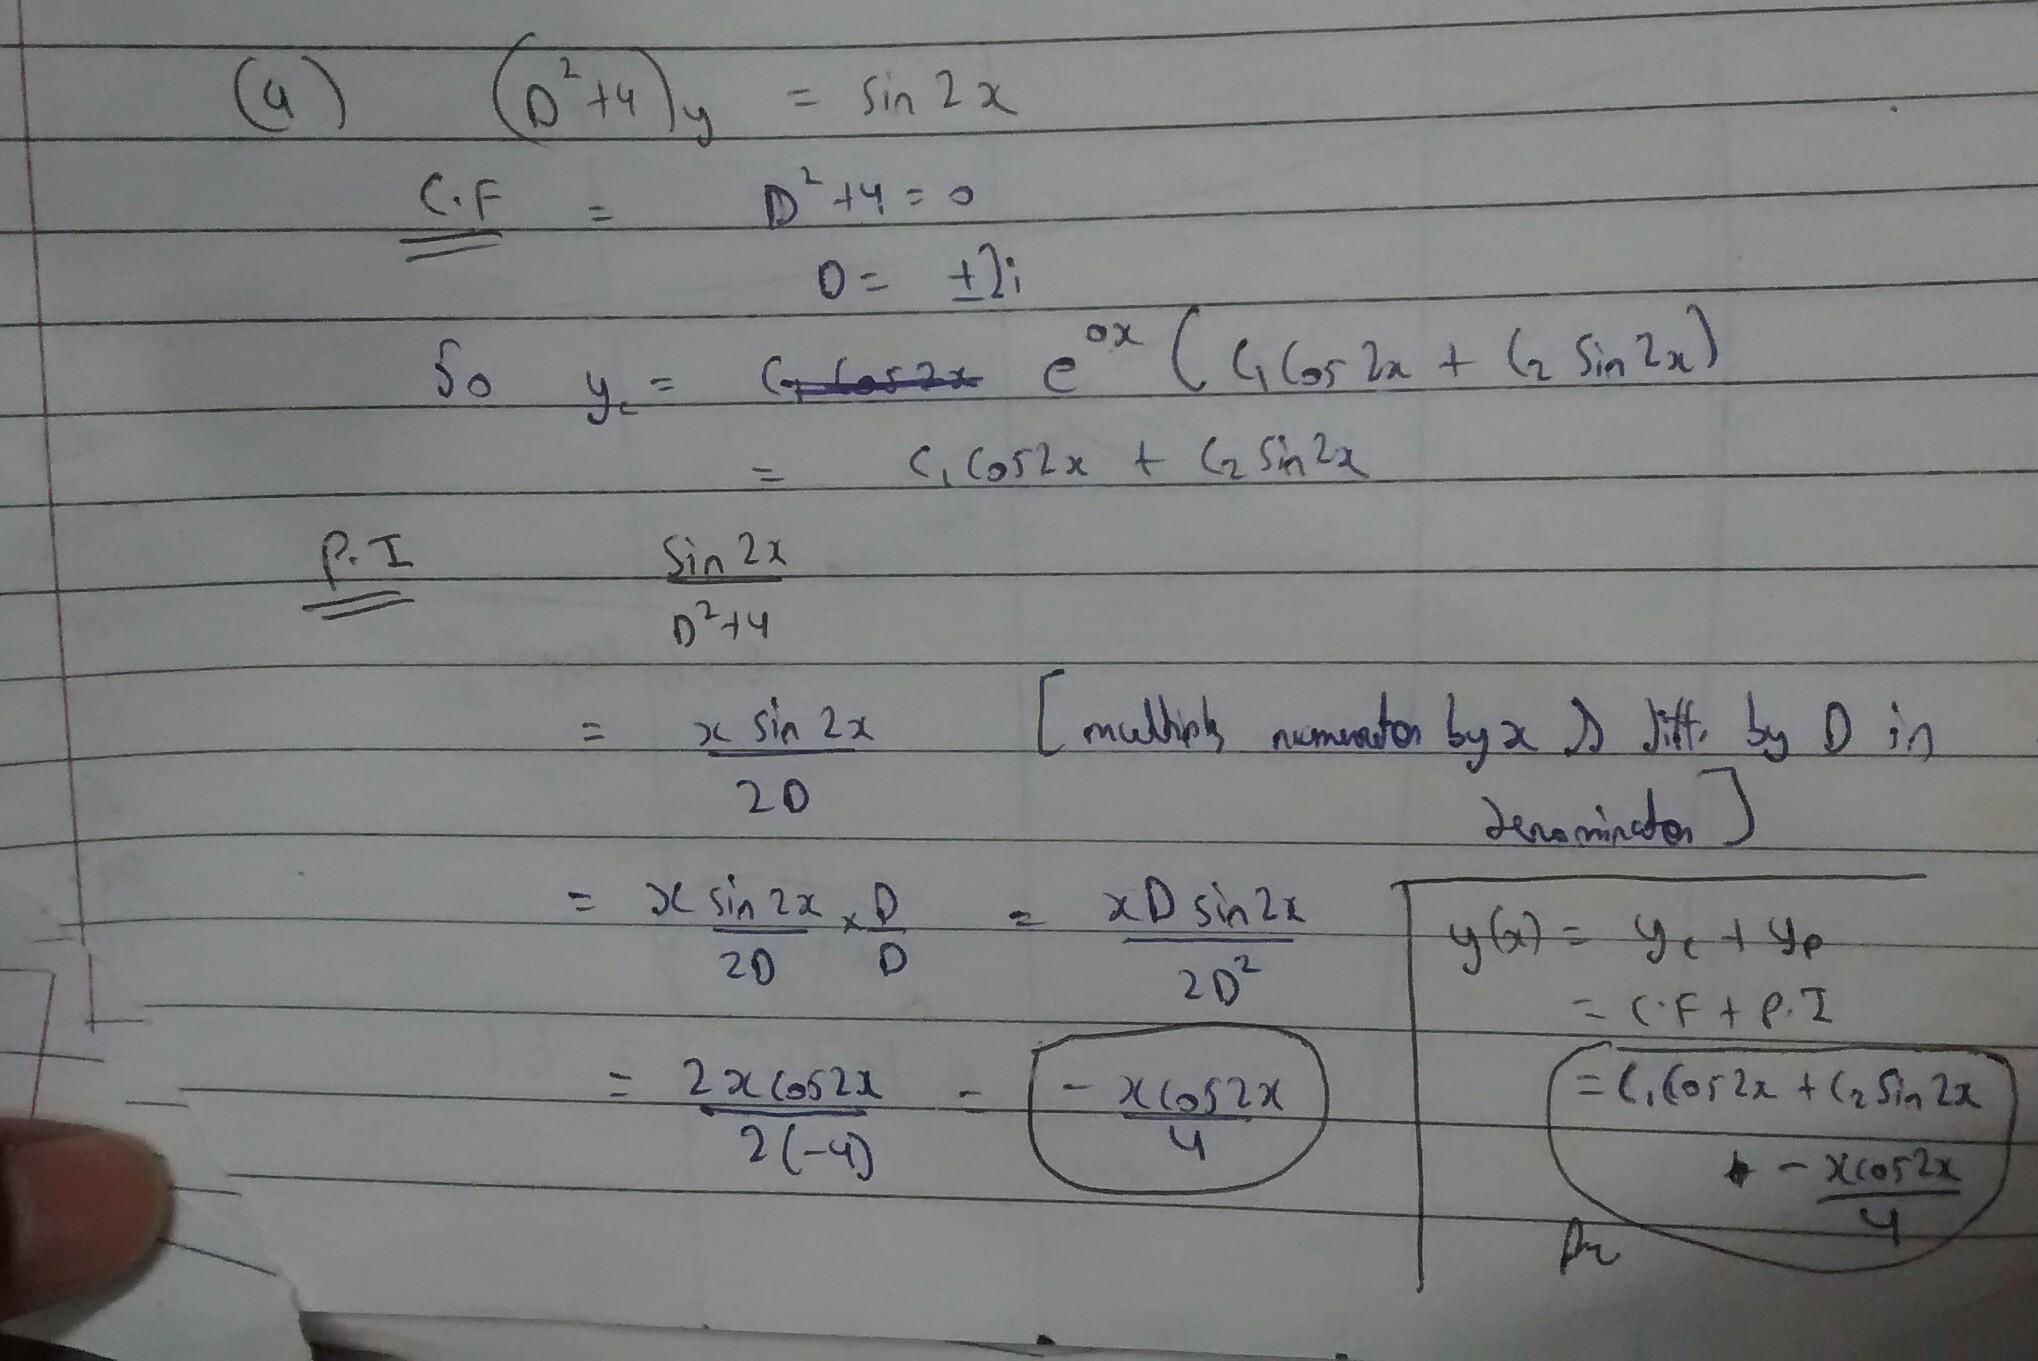 (a) (D²+4)y = sin 2x
C.F = D²+4=0
D= ±2i
So y_c = C₁ Cos2x e^0x (C₁ Cos 2x + C₂ Sin 2x)
= C₁ Cos2x + C₂ Sin 2x
P.I Sin 2x
D²+4
= x sin 2x [multiply numerator by x & diff. by D in
2D
denominator]
= x sin 2x × D = xD sin 2x
2D D 2D²
= 2x Cos2x = - x Cos2x
2(-4) 4
y(x) = y_c + y_p
= C.F + P.I
= C₁ Cos 2x + C₂ Sin 2x
- x cos 2x
4